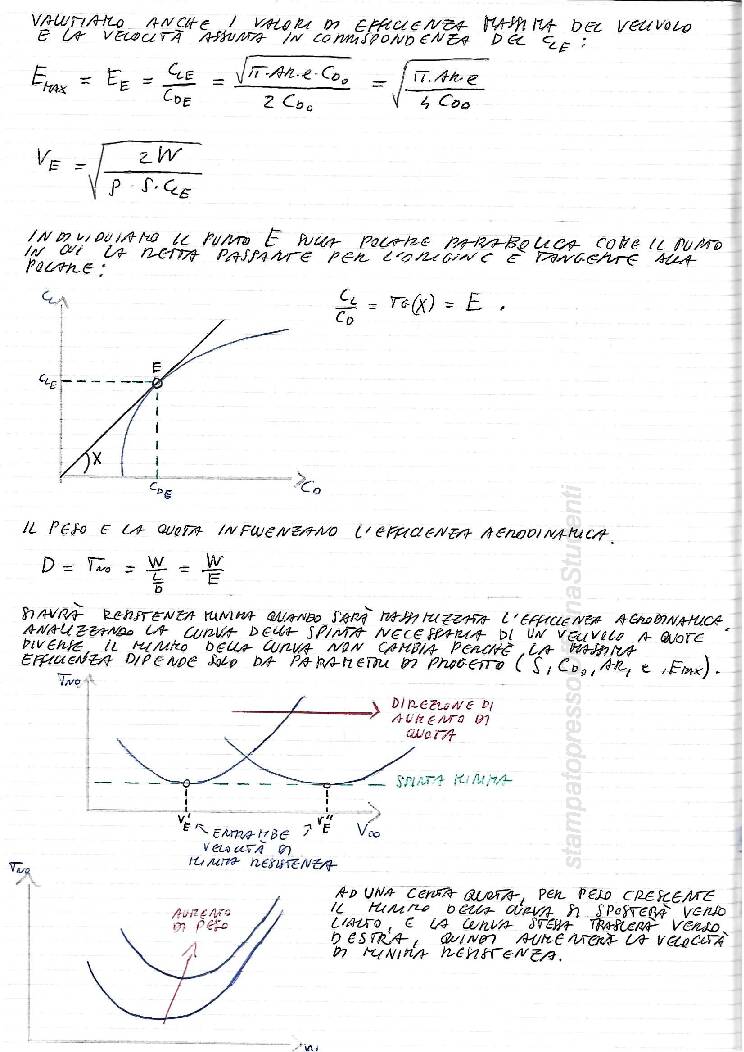 VALUTIAMO ANCHE I VALORI DI EFFICIENZA MASSIMA DEL VELIVOLO
E LA VELOCITÀ ASSUNTA IN CORRISPONDENZA DEL C_LE :
E_MAX = E_E = C_LE / C_DE = √(π·AR·e·C_D0) / 2 C_D0 = √(π·AR·e / 4 C_D0)
V_E = √(2W / ρ·S·C_LE)
INDIVIDUIAMO IL PUNTO E SULLA POLARE PARABOLICA COME IL PUNTO
IN CUI LA RETTA PASSANTE PER L'ORIGINE È TANGENTE ALLA
POLARE:
C_L
C_L / C_D = TG(X) = E .
E
C_LE
X
C_DE
C_D
IL PESO E LA QUOTA INFLUENZANO L'EFFICIENZA AERODINAMICA.
D = T_NO = W / (L/D) = W / E
SI AVRÀ RESISTENZA MINIMA QUANDO SARÀ MASSIMIZZATA L'EFFICIENZA AERODINAMICA.
ANALIZZANDO LA CURVA DELLA SPINTA NECESSARIA DI UN VELIVOLO A QUOTE
DIVERSE IL MINIMO DELLA CURVA NON CAMBIA PERCHÈ LA MASSIMA
EFFICIENZA DIPENDE SOLO DA PARAMETRI DI PROGETTO (S, C_D0, AR, e, E_MAX).
T_NO
DIREZIONE DI
AUMENTO DI
QUOTA
SPINTA MINIMA
V'_E
V''_E
V∞
ENTRAMBE
VELOCITÀ DI
MINIMA RESISTENZA
T_NO
AUMENTO
DI PESO
AD UNA CERTA QUOTA, PER PESO CRESCENTE
IL MINIMO DELLA CURVA SI SPOSTERÀ VERSO
L'ALTO, E LA CURVA STESSA TRASLERÀ VERSO
DESTRA, QUINDI AUMENTERÀ LA VELOCITÀ
DI MINIMA RESISTENZA.